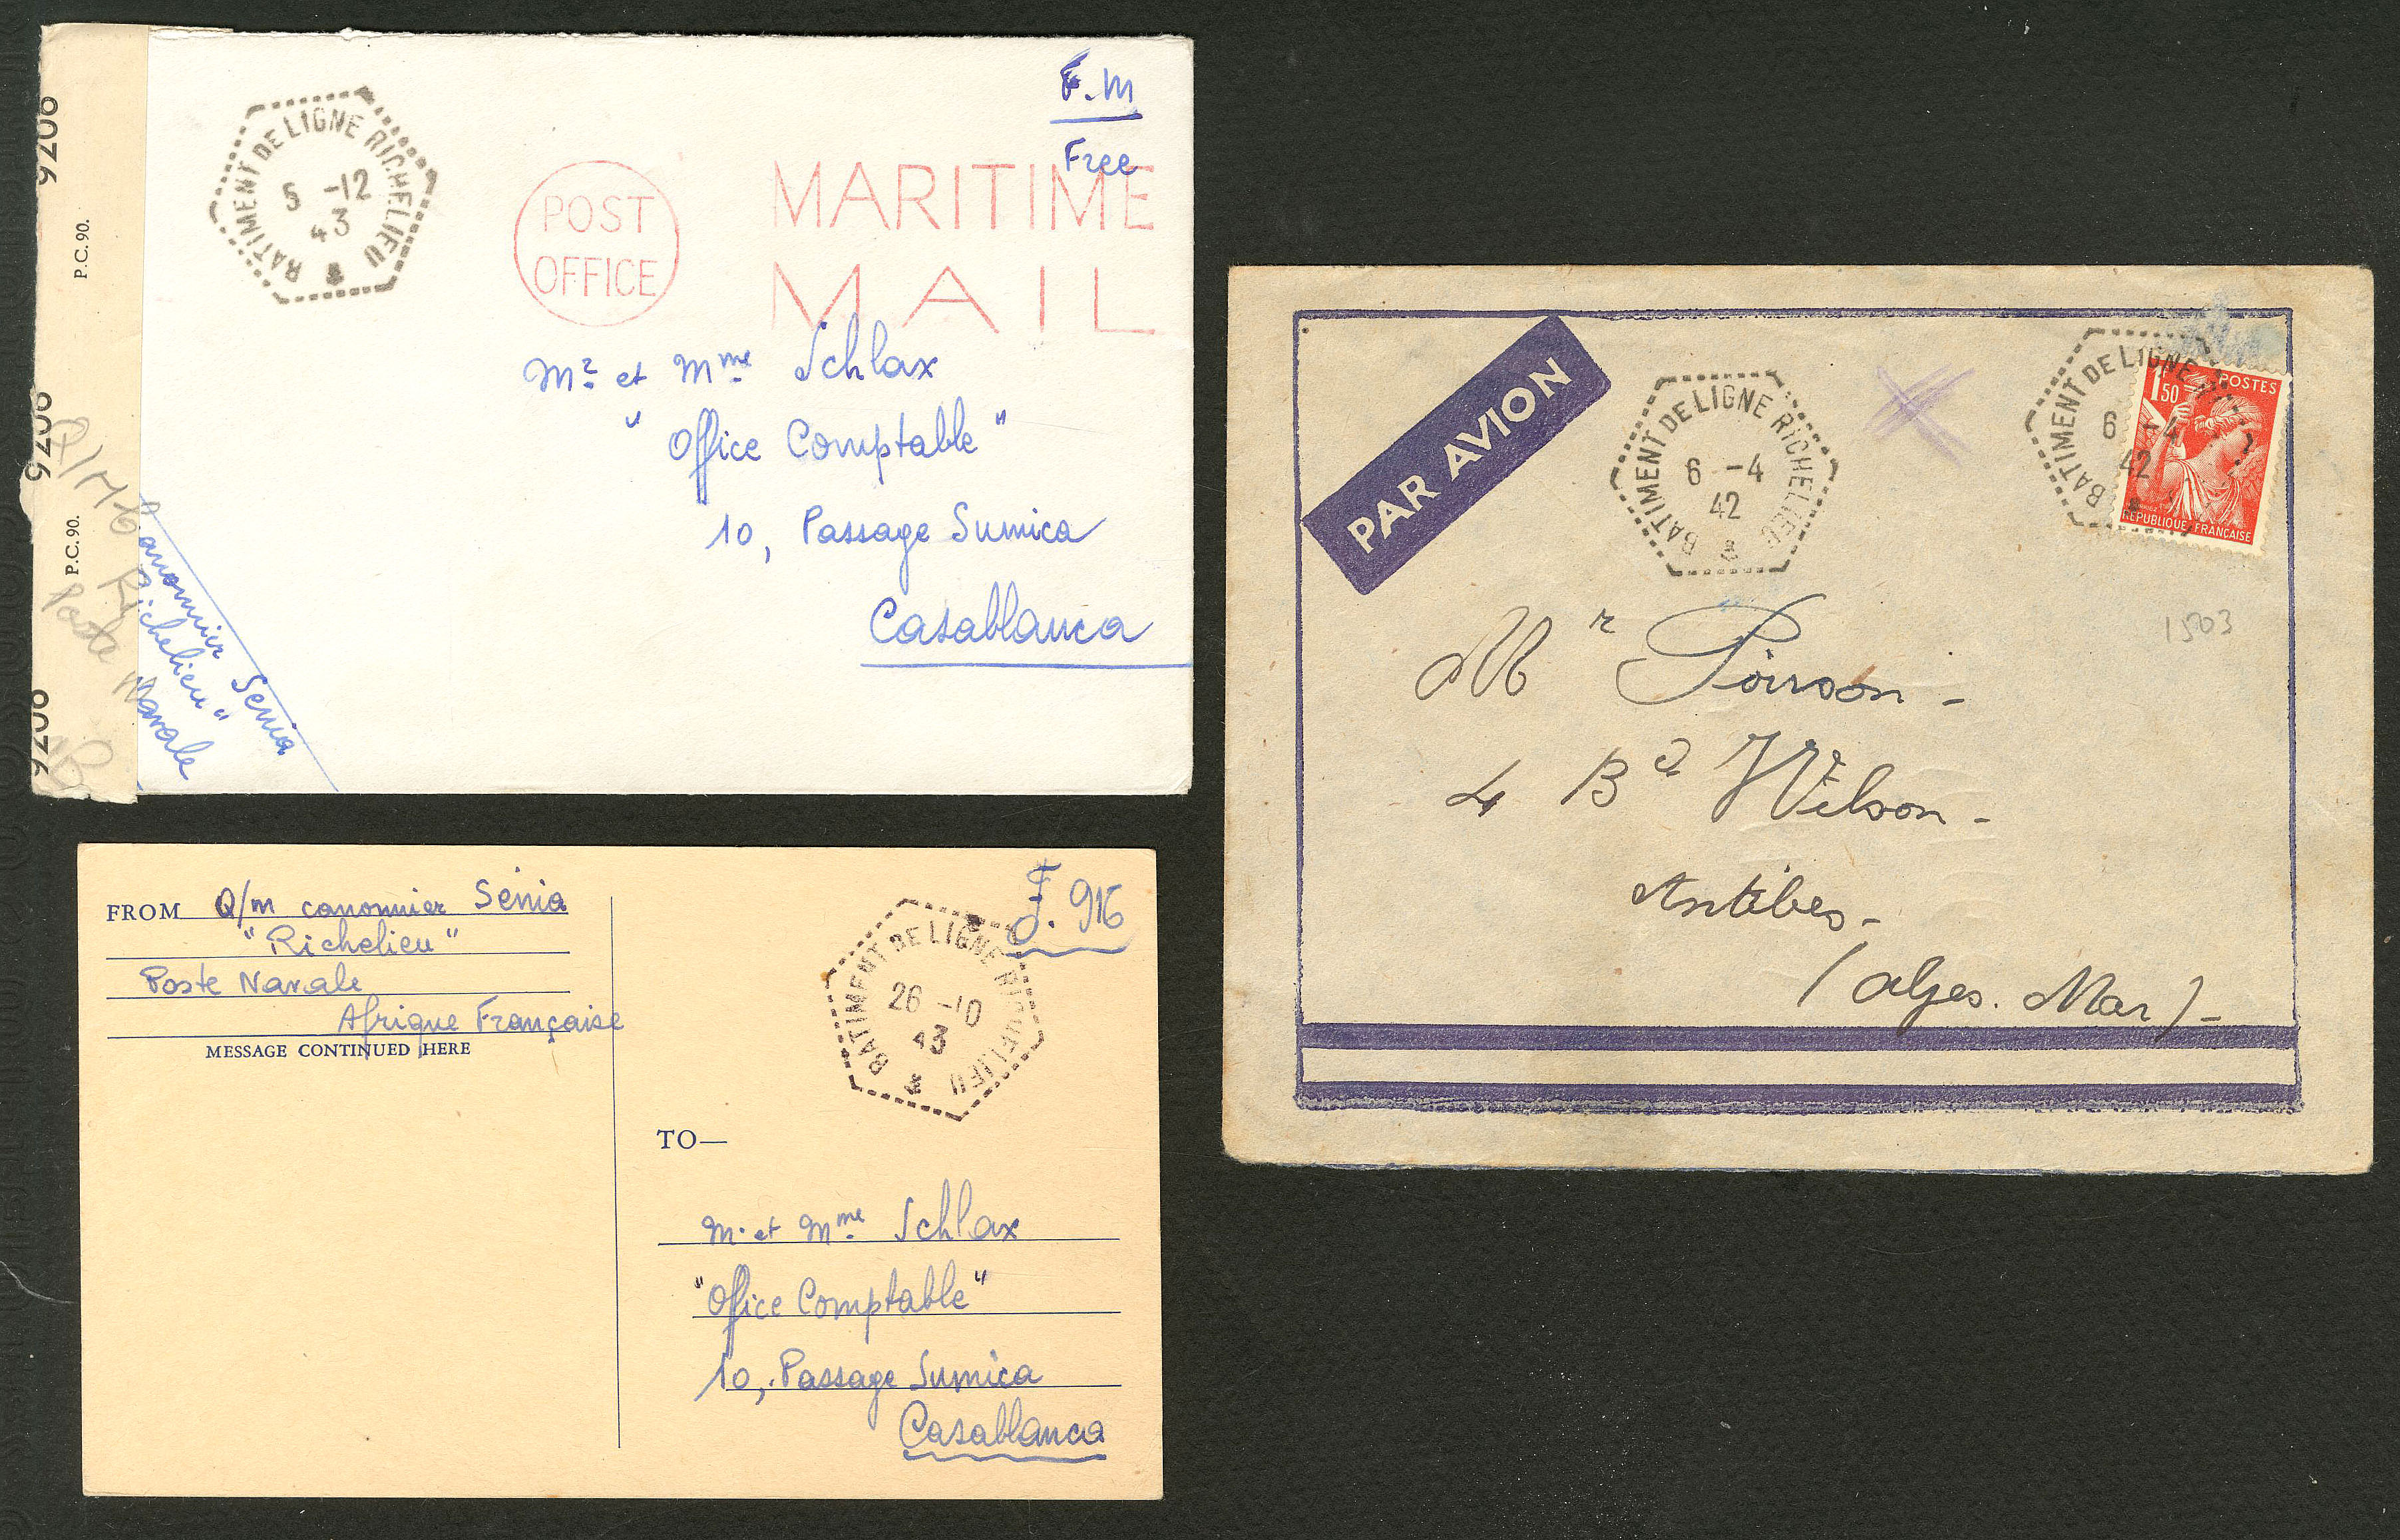 F.M
Free
BATIMENT DE LIGNE RICHELIEU
5 -12
43
POST
OFFICE
MARITIME
MAIL
Mr et Mme Schlax
"Office Comptable"
10, Passage Sumica
Casablanca
9206
P.C. 90.
9206
P.C. 90.
9206
Q/M
Poste
canonnier Senia
Richelieu"
Navale
FROM Q/m canonnier Senia
"Richelieu"
Poste Navale
Afrique Française
MESSAGE CONTINUED HERE
F. 916
BATIMENT DE LIGNE RICHELIEU
26 -10
43
TO—
M. et Mme Schlax
"Office Comptable"
10, Passage Sumica
Casablanca
PAR AVION
BATIMENT DE LIGNE RICHELIEU
6 -4
42
BATIMENT DE LIGNE
6 -4
42
1F50
POSTES
REPUBLIQUE FRANÇAISE
1503
Mr Poirson -
4 Bd Wilson -
Antibes -
(Alpes. Mar) -